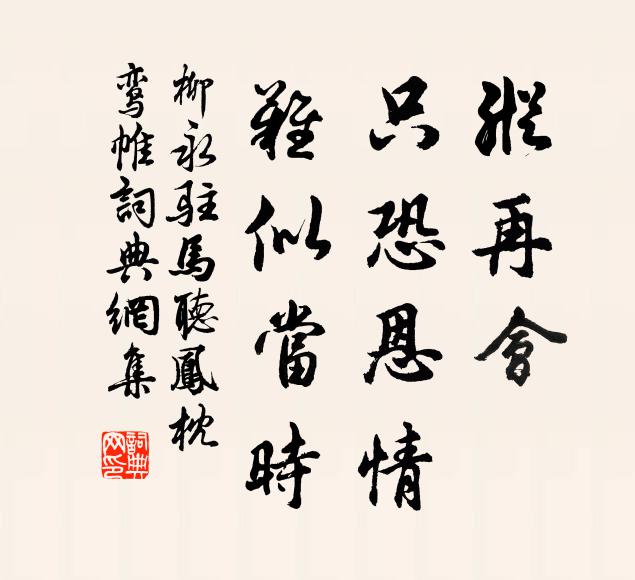 縱再會
只恐恩情
難似當時
柳永駐馬聽鳳枕
鸾帷詞典網集
詞典
网印